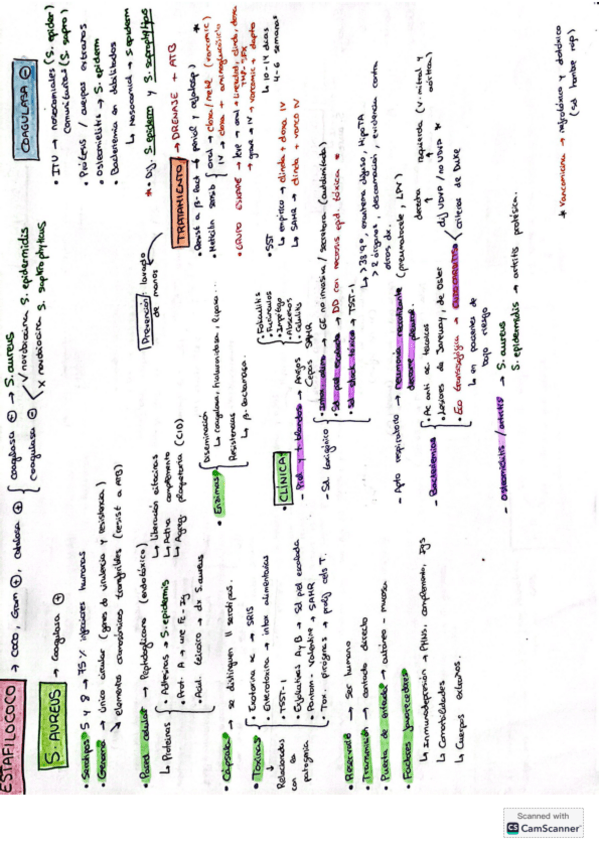 ESTAFILOCOCO → COCO, Gram ⊕, catalasa ⊕
coagulasa ⊕ → S. aureus
coagulasa ⊖
√ novobiocina S. epidermidis
X novobiocina S. saprophyticus
S. AUREUS → Coagulasa ⊕
• Serotipos 5 y 8 → 75% infecciones humanas
• Genoma → único circular (genes de virulencia y resistencia)
↘ elementos cromosómicos transferibles (resist a ATB)
• Pared celular → Peptidoglicano (endotóxico)
↳ Liberación citocinas
↳ Activa complemento
↳ Agreg. plaquetaria (CID)
↳ Proteínas
• Adhesinas → S. epidermis
• Prot. A → une Fc-Ig
• Acid. teicoico → dx S. aureus
• Cápsula → se distinguen 11 serotipos.
• Toxinas
Relacionados con la patogenia
• Enterotoxina → intox alimentarias
• TSST-1
• Exfoliativas A y B → Sd piel escaldada
• Panton-Valentine → SAMR
• Tox. pirógenas → prolif céls T.
• Enzimas
Diseminación
↳ Coagulasa, hialuronidasa, lipasa...
Resistencias
↳ β-lactamasa
• Reservorio → Ser humano
• Transmisión → contacto directo
• Puerta de entrada → cutáneo-mucosa
• Factores favorecedores
↳ Inmunodepresión → PMNs, complemento, Igs
↳ Comorbilidades
↳ Cuerpos extraños.
• CLÍNICA
- Piel y t. blandos
• Foliculitis
• Forúnculos
• Impétigo
• Abscesos
• Celulitis
- Sd toxigénico
• Intox. alim → GE no invasiva / secretora (autolimitada)
• Sd piel escaldada → DD con necrosis epd. tóxica
• Sd shock tóxico → TSST-1
↳ > 38'9º, exantema difuso, HipoTA
> 2 órganos, descamación, evidencia contra otros dx.
- Apto respiratorio → neumonía necrotizante (neumatocele, LPV)
derrame pleural.
- Bacteriemias
• Ac anti ac teicoicos
• Lesiones de Janeway, de Osler
• Eco transesofágica → ENDOCARDITIS
↳ en pacientes de bajo riesgo
derecha
izquierda (v. mitral y aórtica)
dif UDVP / no UDVP
criterios de Duke
- Osteomielitis / artritis → S. aureus
S. epidermidis → artritis protésica.
COAGULASA ⊖
• ITU → nosocomiales (S. epider)
comunitarias (S. sapro)
• Prótesis / cuerpos extraños
• Osteomielitis → S. epiderm
• Bacteriemia en debilitados
↳ Nosocomial → S. epiderm
* • Dif. S. epiderm y S. saprophyticus
Prevención: lavado de manos
TRATAMIENTO → DRENAJE + ATB
• Resist a β-lact → penicil y cefalosp
• Meticilin sensib
oral → cloxa/metic (vancomic)
IV → cloxa + aminoglucósido
TMP-SMX
• SST
↳ 10-14 días
4-6 semanas
↳ empírico → clinda + cloxa IV
↳ SAMR → clinda + vanco IV
* Vancomicina → nefrotóxico y ototóxico
(sd hombre rojo)
Scanned with
CS CamScanner